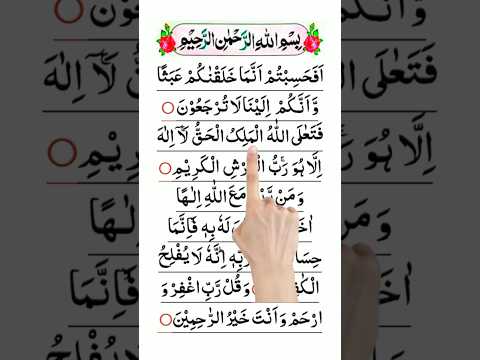 بِسْمِ اللهِ الرَّحْمٰنِ الرَّحِيْمِ
اَفَحَسِبْتُمْ اَنَّمَا خَلَقْنٰكُمْ عَبَثًا
وَّاَنَّكُمْ اِلَيْنَا لَا تُرْجَعُوْنَ
فَتَعٰلَى اللّٰهُ الْمَلِكُ الْحَقُّ لَآ اِلٰهَ
اِلَّا هُوَ رَبُّ الْكَرِيْمِ
وَمَنْ مَعَ اللّٰهِ اِلٰهًا
لَهٗ بِهٖ فَاِنَّمَا
اِنَّهٗ لَا يُفْلِحُ
وَقُلْ رَّبِّ اغْفِرْ وَ
ارْحَمْ وَاَنْتَ خَيْرُ الرّٰحِمِيْنَ